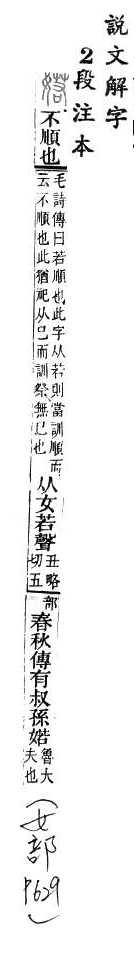 說文解字
2段注本
婼
不順也
毛詩傳曰若順也此字从若則當訓順而
云不順也此猶祀从巳而訓祭無巳也
从女若聲
丑略
切五
部
春秋傳有叔孫婼
魯大
夫也
(女部 P629)